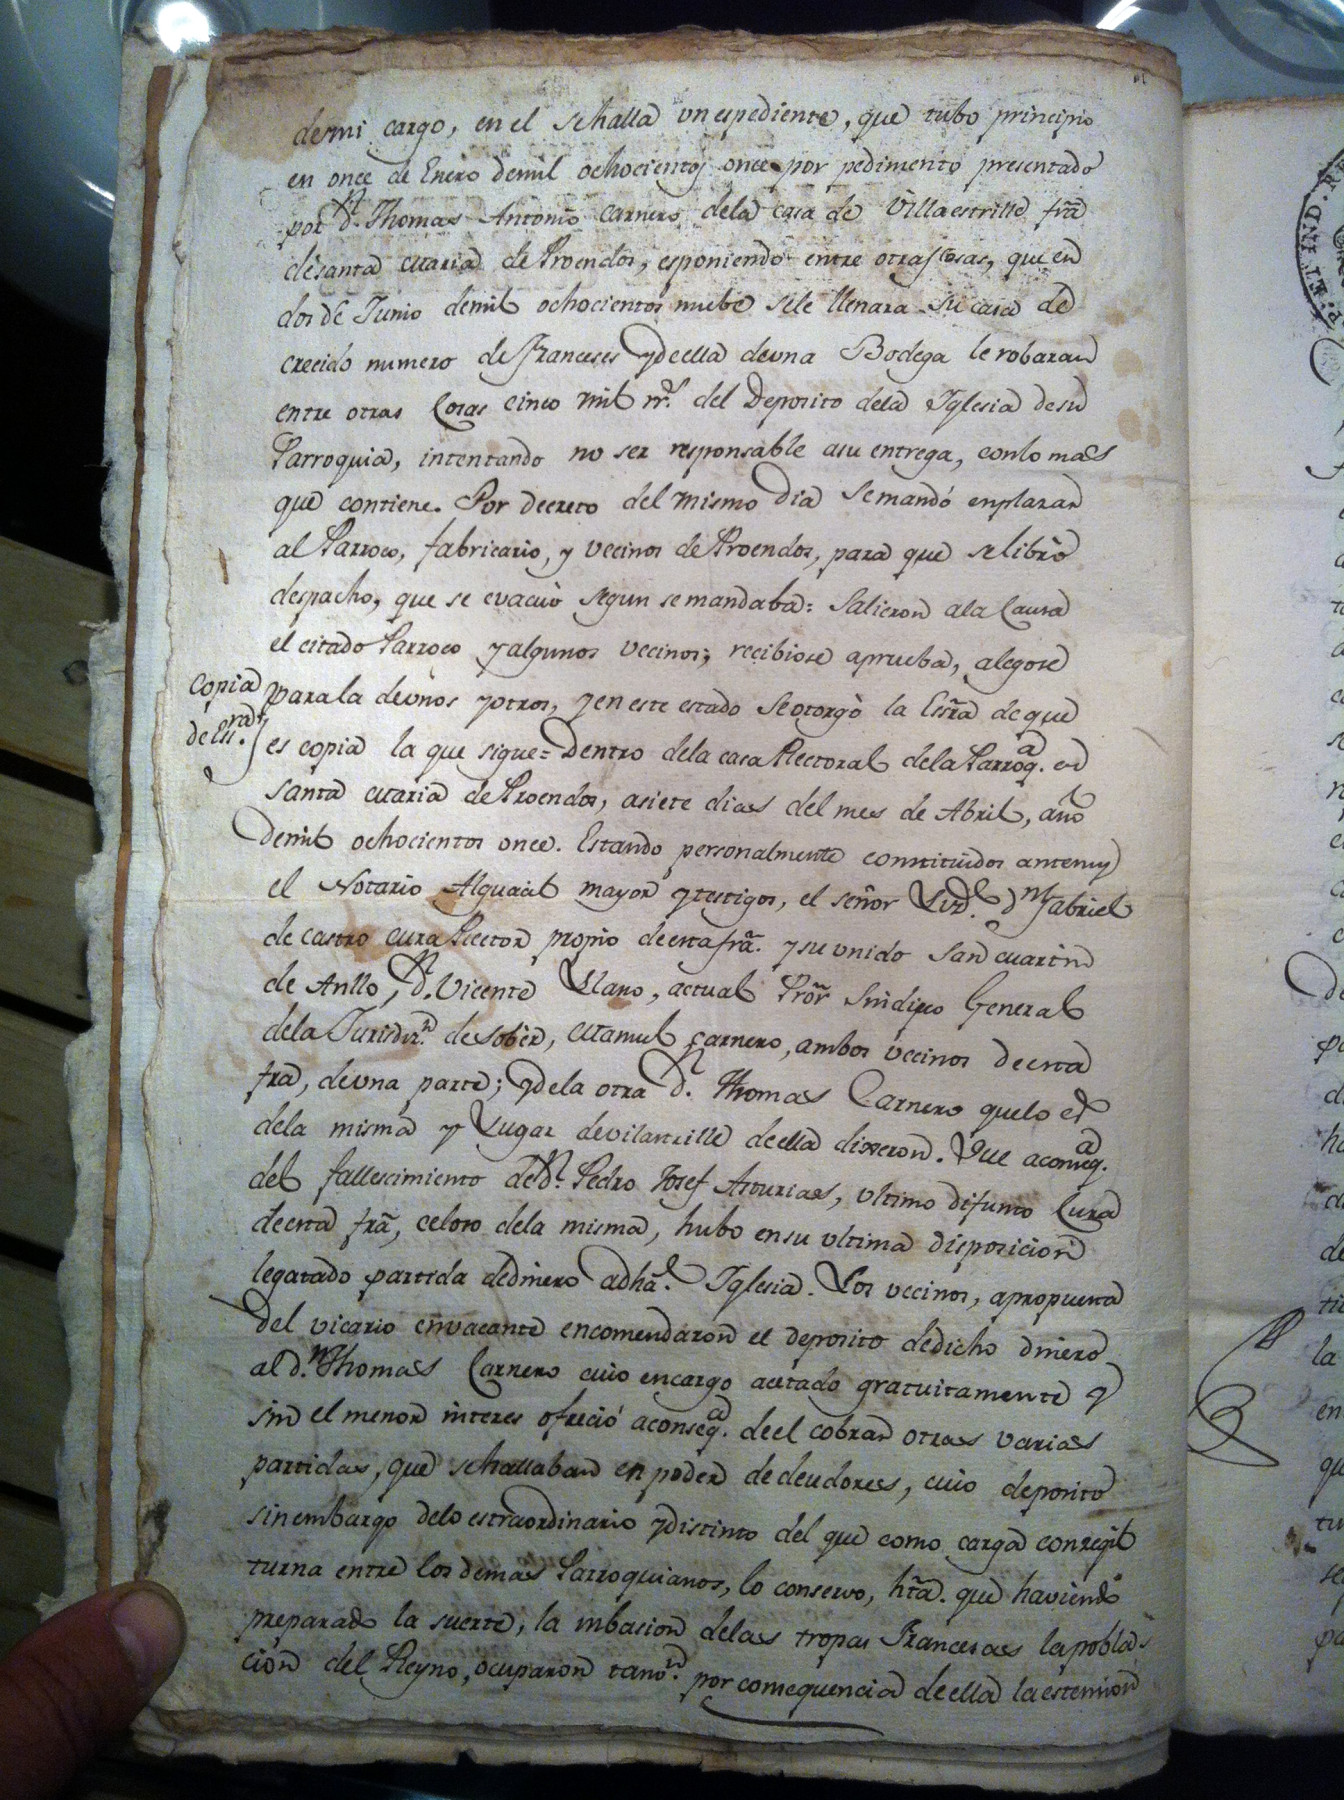 demi cargo, en el se halla un espediente, que tubo principio
en once de Enero demil ochocientos once por pedimento presentado
por Dn. Thomas Antonio Carnero dela casa de Villaestrille frã
desanta Maria de Proendos, esponiendo entre otras cosas, que en
dos de Junio demil ochocientos nuebe sele llenara su casa de
crecido numero de franceses y de ella deuna Bodega le robaran
entre otras Cosas cinco mil rrs. del Deposito dela Yglesia de su
Parroquia, intentando no ser responsable asu entrega, con lo mas
que contiene. Por decreto del mismo Dia se mandó enplazar
al Parroco, fabricario, y vecinos de Proendos, para que se librò
despacho, que se evacuò segun se mandaba: Salieron ala Causa
el citado Parroco y algunos vecinos; recibiose aprueba, alegose
copia para la deunos y otros, y en este estado se otorgò la Essrã de que
de Essra. es copia la que sigue = Dentro dela casa Rectoral dela Parroqa. de
Santa Maria de Proendos, asiete dias del mes de Abril, año
Demil ochocientos once. Estando personalmente constituidos antemy
el Notario Alguacil mayor y testigos, el señor Lizdo. Dn Gabriel
de castro cura Rector propio de esta frã. y su unido San Martin
de Anllo, Dn. Vicente Llano, actual Prõr Sindico General
dela Jurisdizn. de Sober, Manuel Carnero, ambos vecinos de esta
frã, deuna parte; y dela otra Dn. Thomas Carnero que lo es
dela misma y Lugar de vilaestrille de ella dixeron. Que aconseqa.
del fallescimiento de Dn. Pedro Josef Asturias, ultimo difunto Cura
de esta frã, celoso dela misma, hubo en su ultima disposicion
legatado partida de dinero a dhã. Yglesia. Los vecinos, apropuesta
Del vicario en vacante encomendaron el deposito de dicho dinero
al Dn. Thomas Carnero cuio encargo acetado gratuitamente y
sin el menor interes ofreció aconseqa. de el cobrar otras varias
partidas, que se hallaban en poder de deudores, cuio deposito
sin embargo delo estraordinario y distinto del que como carga conzegil
turna entre los demas Parroquianos, lo conservo, htã. que haviendo
preparado la suerte, la inbasion delas tropas Francesas la pobla-
cion del Reyno, ocuparon tanvn. por consequencia de ella la estension